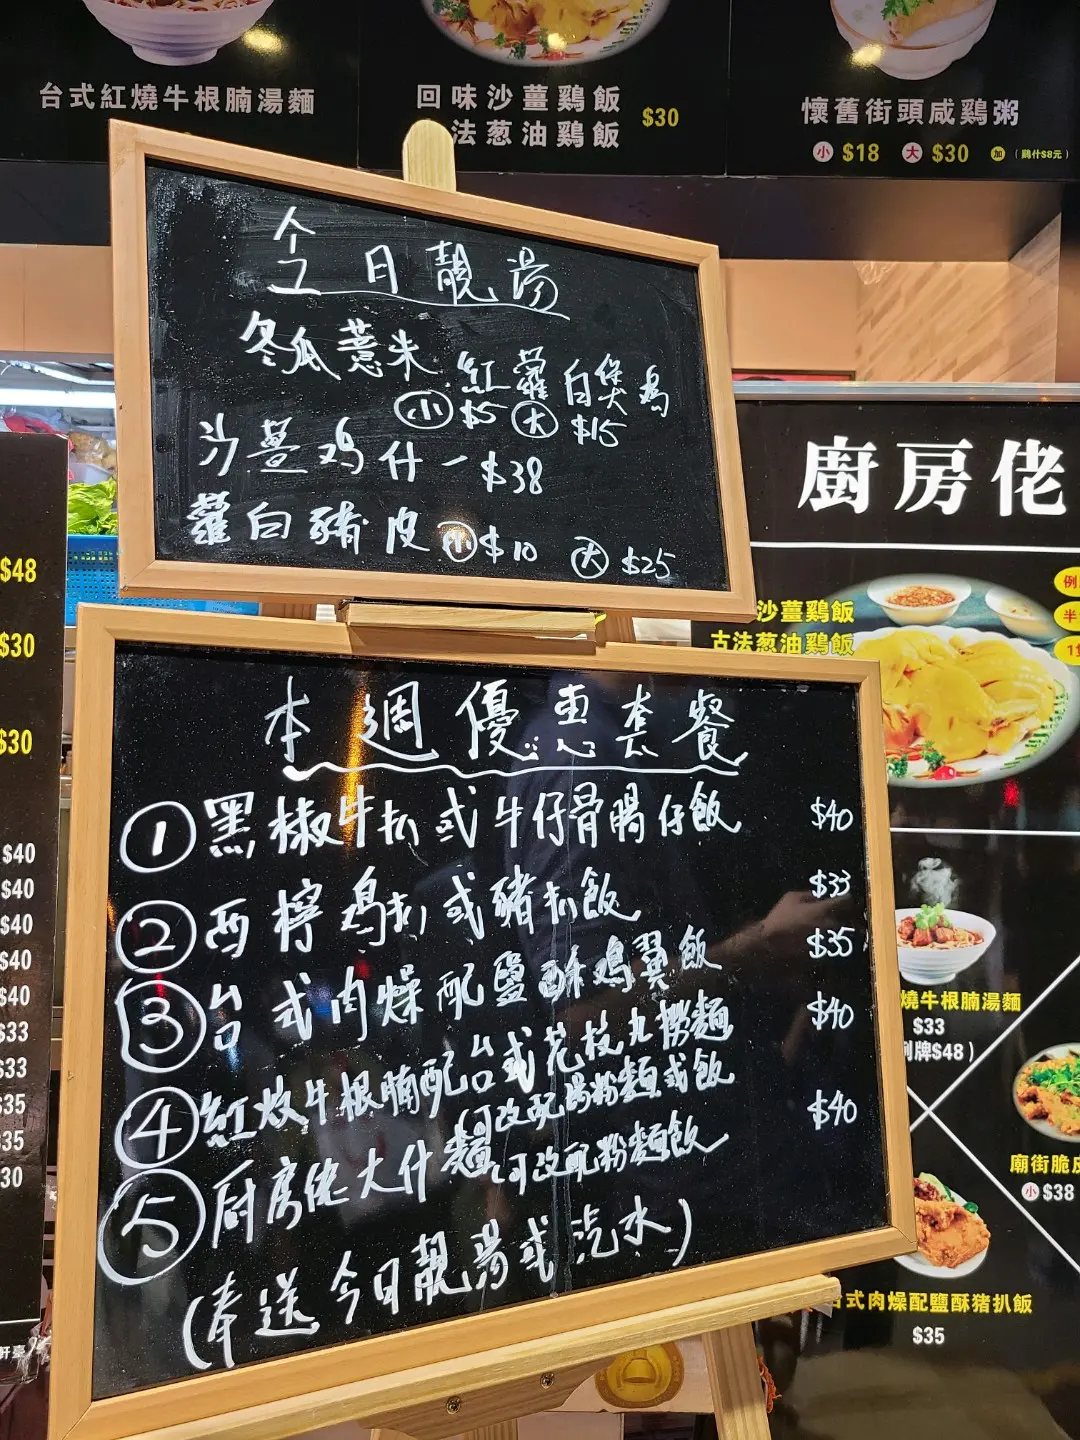 台式紅燒牛根腩湯麵
回味沙薑鷄飯
法葱油鷄飯
$30
懷舊街頭咸鷄粥
小 $18 大 $30 加 (鷄什$8元)
今日靚湯
冬瓜薏米
紅蘿白煲鸡
小 $5 大 $15
沙薑鸡什一$38
蘿白豬皮 小 $10 大 $25
本週優惠套餐
① 黑椒牛扒或牛仔骨腸仔飯 $40
② 西檸鸡扒或豬扒飯 $33
③ 台式肉燥配鹽酥鸡翼飯 $35
④ 紅炆牛根腩配台式花枝丸撈麵 $40
可改配湯粉麵或飯
⑤ 厨房佬大什麵 可改配粉麵飯 $40
(奉送今日靚湯或汽水)
$48
$30
$30
$40
$40
$40
$40
$40
$33
$33
$35
$35
$30
軒臺
廚房佬
例
半
沙薑鷄飯
古法葱油鷄飯
燒牛根腩湯麵
$33
例牌$48)
廟街脆皮
小 $38
台式肉燥配鹽酥猪扒飯
$35